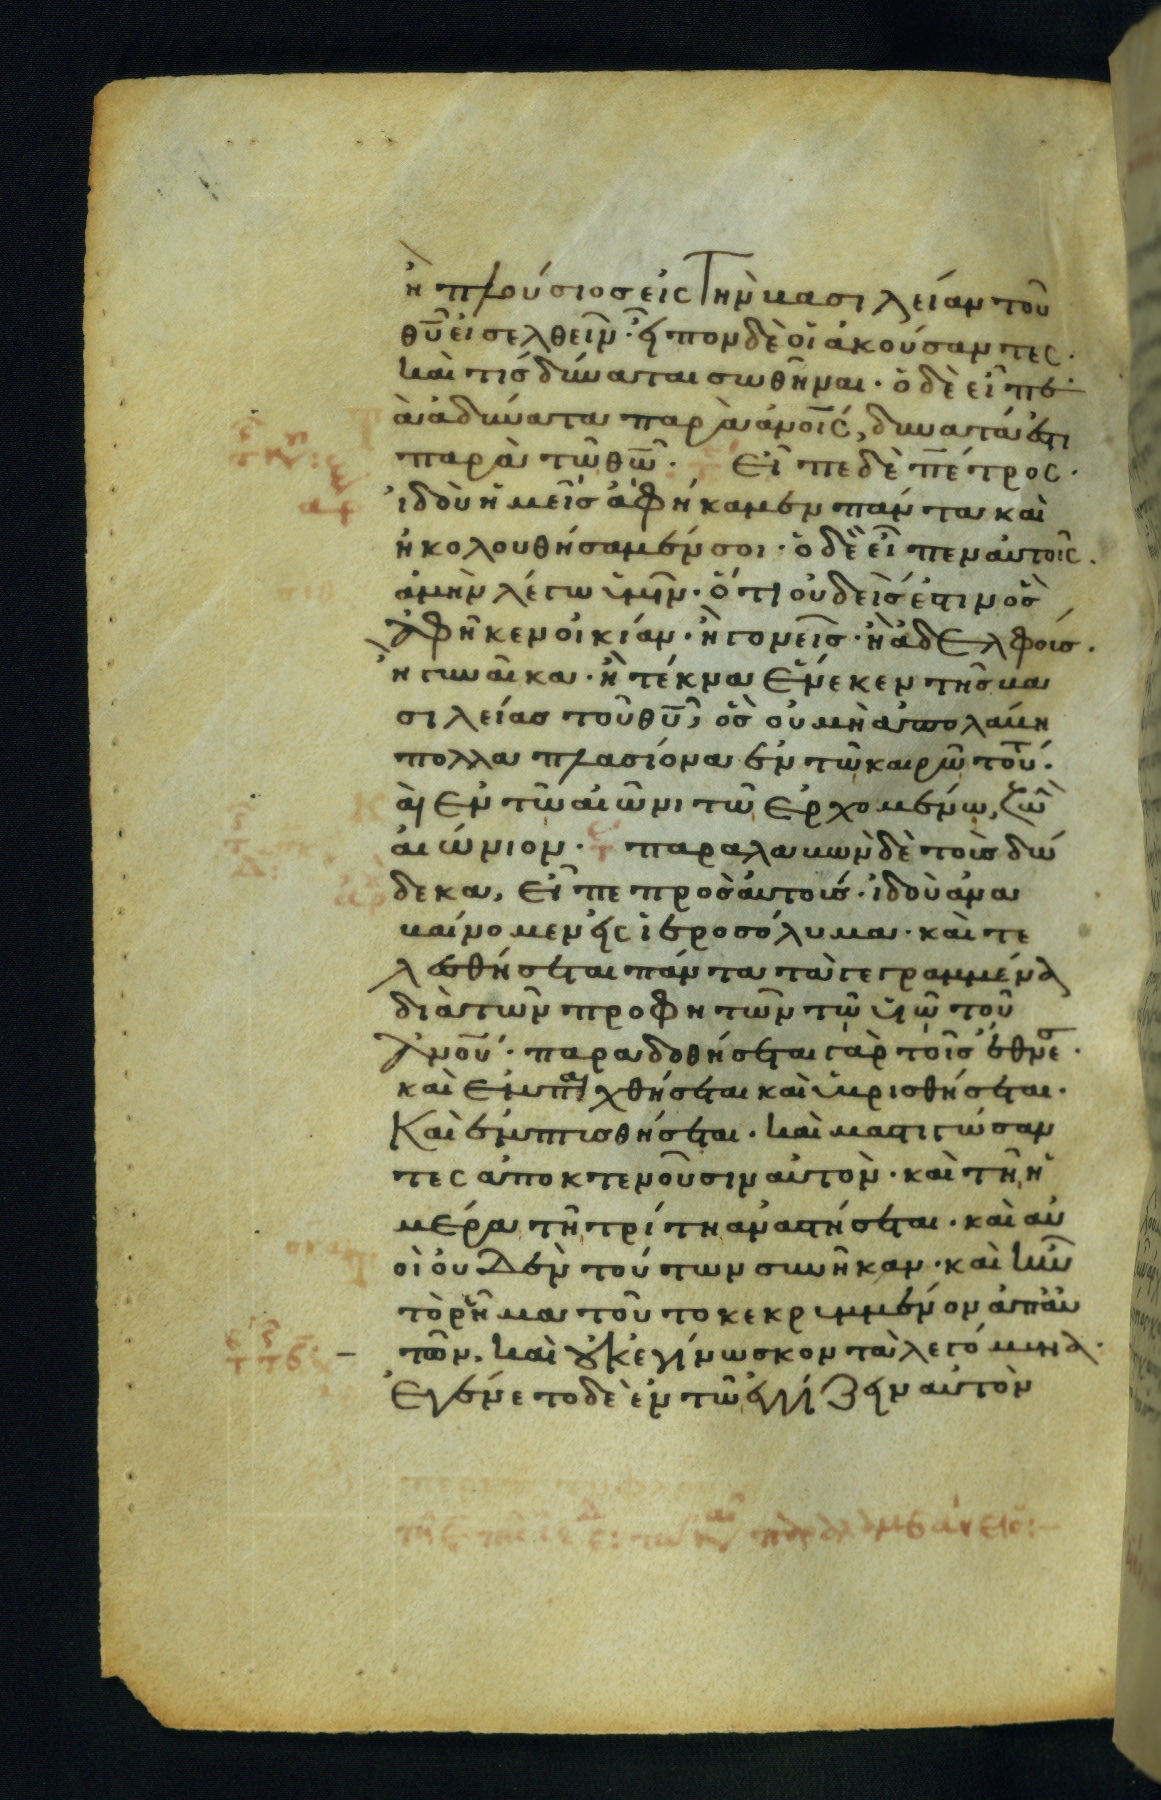 ἢ πλούσιος εἰς τὴν βασιλείαν τοῦ
θῦ εἰσελθεῖν· εἶπον δὲ οἱ ἀκούσαντες·
καὶ τίς δύναται σωθῆναι· ὁ δὲ εἶπε·
τὰ ἀδύνατα παρὰ ἀνοις, δυνατά ἐστι
παρὰ τῶ θῶ· Εἶπε δὲ πέτρος·
ἰδοὺ ἡμεῖς ἀφήκαμεν πάντα καὶ
ἠκολουθήσαμέν σοι· ὁ δὲ εἶπεν αὐτοῖς·
ἀμὴν λέγω ὑμῖν· ὅτι οὐδεὶς ἐστιν ὃς
ἀφῆκεν οἰκίαν· ἢ γονεῖς· ἢ ἀδελφοὺς·
ἢ γυναῖκα· ἢ τέκνα ἕνεκεν τῆς βα
σιλείας τοῦ θῦ, ὃς οὐ μὴ ἀπολάβη
πολλαπλασίονα ἐν τῶ καιρῶ τού·
καὶ ἐν τῶ αἰῶνι τῶ ἐρχομένω, ζωὴ
αἰώνιον· παραλαβὼν δὲ τοὺς δώ
δεκα, εἶπε πρὸς αὐτούς· ἰδοὺ ἀνα
βαίνομεν εἰς ἱεροσόλυμα· καὶ τε
λεσθήσεται πάντα τὰ γεγραμμένα
διὰ τῶν προφητῶν τῶ υἱῶ τοῦ
ἀνου· παραδοθήσεται γὰρ τοῖς ἔθνεσ·
καὶ ἐμπαιχθήσεται καὶ ὑβρισθήσεται·
Καὶ ἐμπτυσθήσεται· καὶ μαστιγώσαν
τες ἀποκτενοῦσιν αὐτὸν· καὶ τῆ ἡ
μέρα τῆ τρίτη ἀναστήσεται· καὶ αὐ
οὶ οὐδὲν τούτων συνῆκαν· καὶ ἦν
τὸ ῥῆμα τοῦτο κεκρυμμένον ἀπ᾽ αὐ
τῶν, καὶ οὐκ ἐγίνωσκον τὰ λεγόμενα·
Ἐγένετο δὲ ἐν τῶ ἐγγίζειν αὐτὸν